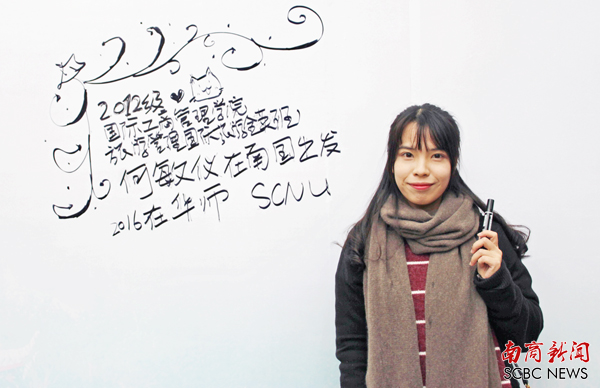 2012级
国际工商管理学院
旅游管理国际旅游全英班
何敏仪在南国之发
2016在华师 SCNU
南商新闻
SCBC NEWS